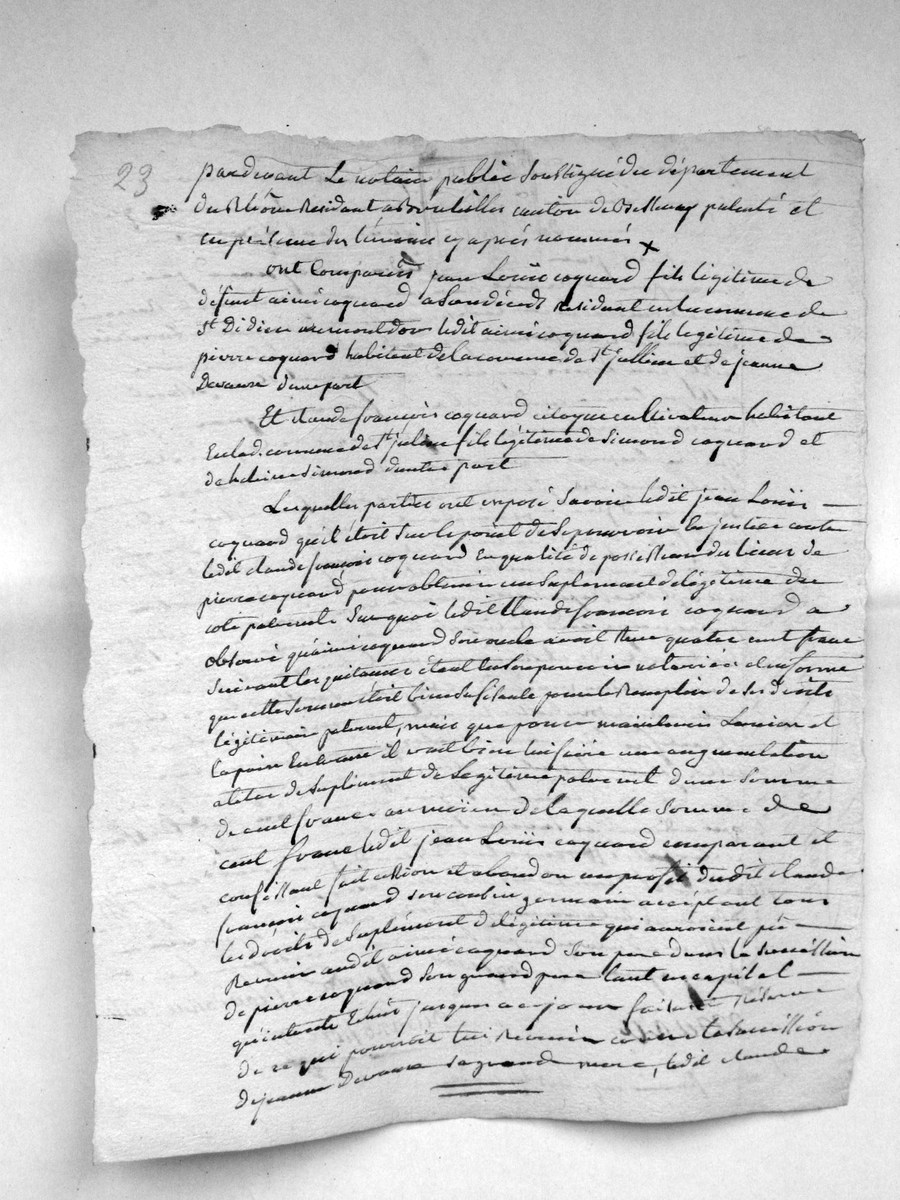 23
pardevant Le notaire public Soussigné du département
du Rhône Residant a canton de patenté et
en présence des témoins cy après nommés
ont Comparus jean Louis coquard fils légitime de
défunt aimé coquard a Son décès Residant en la commune de
St Didier au mont dor ledit aimé coquard fils légitime de
pierre coquard habitant de la commune de St jullien et de jeanne
Devaure dune part
Et claude françois coquard citoyen cultivateur habitant
En lad. commune de St julien fils légitime de Simond coquard et
de Simond dautre part
Lesquelles parties ont exposé Savoir ledit jean Louis
coquard qu'il étoit Sur le point de Se pourvoir En justice contre
ledit claude françois coquard En qualité de possesseur des biens de
pierre coquard pour obtenir un Suplement de légitime du
coté paternel Sur quoi ledit Claude françois coquard a
observé qu'aimé coquard Son oncle avoit Reçu quatre cent francs
Suivant les quitances étant en Son pouvoir notariées et en forme
que cette Somme étoit bien Sufisante pour le Remplir de Ses droits
légitimaire paternel, mais que pour maintenir Lunion et
la paix Entreux il vouloit bien lui faire une augmentation
a titre de Suplement de Légitime paternel dune Somme
de cent francs au moïen de laquelle Somme de
cent francs ledit jean Louis coquard comparant et
confessant fait cession et abandon au profit dudit claude
françois coquard Son cousin germain acceptant tous
les droits de Suplément de légitime qui auroient pû
Revenir audit aimé coquard Son pere dans la Succession
de pierre coquard Son grand pere tant en capital
qu'intérêts Echûs jusques a ce jour faisant Réserve
de ce qui pourroit lui Revenir la Succession
de jeanne Devaure Sa grand mere, ledit claude